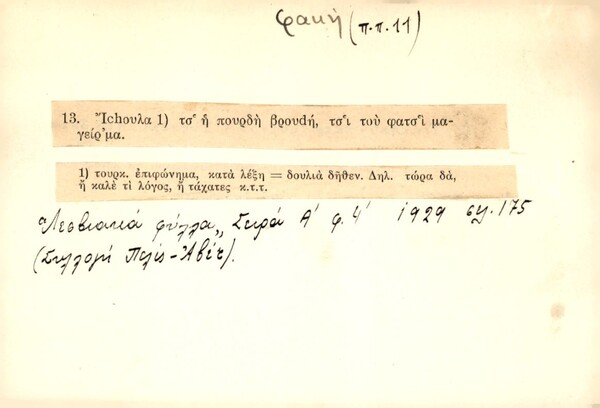 φακή (π.π. 11)
13. Ἴchουλα 1) τσ̔ ἡ πουρδὴ βρουdή, τσ̔ι τοὺ φατσ̔ὶ μα-
γείρ'μα.
1) τουρκ. ἐπιφώνημα, κατὰ λέξη = δουλιὰ δῆθεν. Δηλ. τώρα δά,
ἢ καλὲ τὶ λόγος, ἢ τάχατες κ.τ.τ.
"Λεσβιακά φύλλα" Σειρά Α' φ. 4' 1929 σελ. 175
(Συλλογή